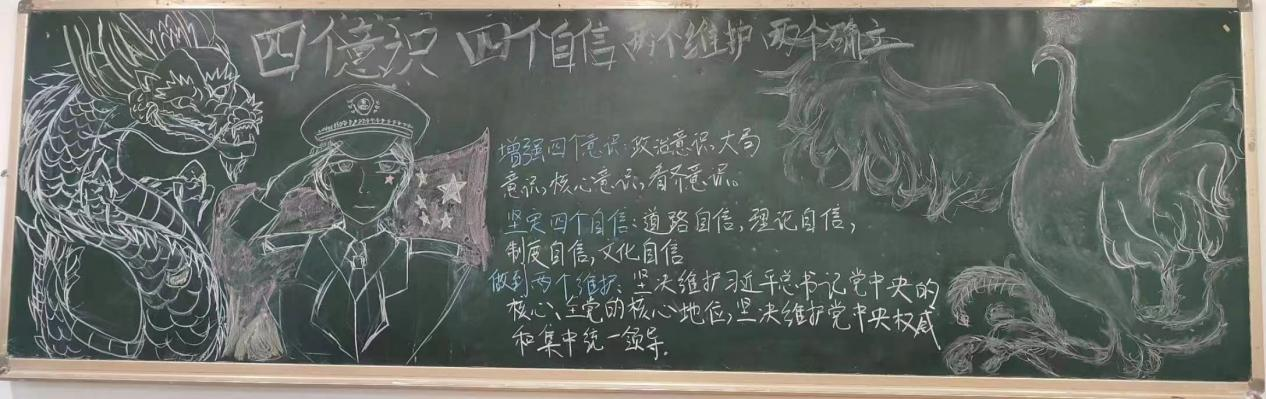 四个意识 四个自信 两个维护 两个确立
增强四个意识:政治意识、大局
意识,核心意识,看齐意识。
坚定四个自信:道路自信,理论自信,
制度自信,文化自信
做到两个维护:坚决维护习近平总书记党中央的
核心、全党的核心地位,坚决维护党中央权威
和集中统一领导.